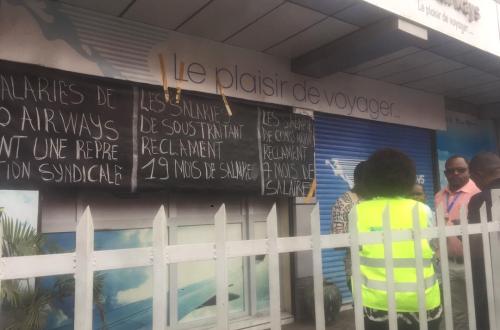 Le plaisir de voyager...
Le plaisir de voyager...
ALARIES DE
O AIRWAYS
NT UNE REPRE
TION SYNDICALE
LES SALARIE
DE SOUS TRAITANT
RECLAMENT
19 MOIS DE SALAIRE
LES SALARIE
DE
RECLAMENT
MOIS DE
SALAIRE